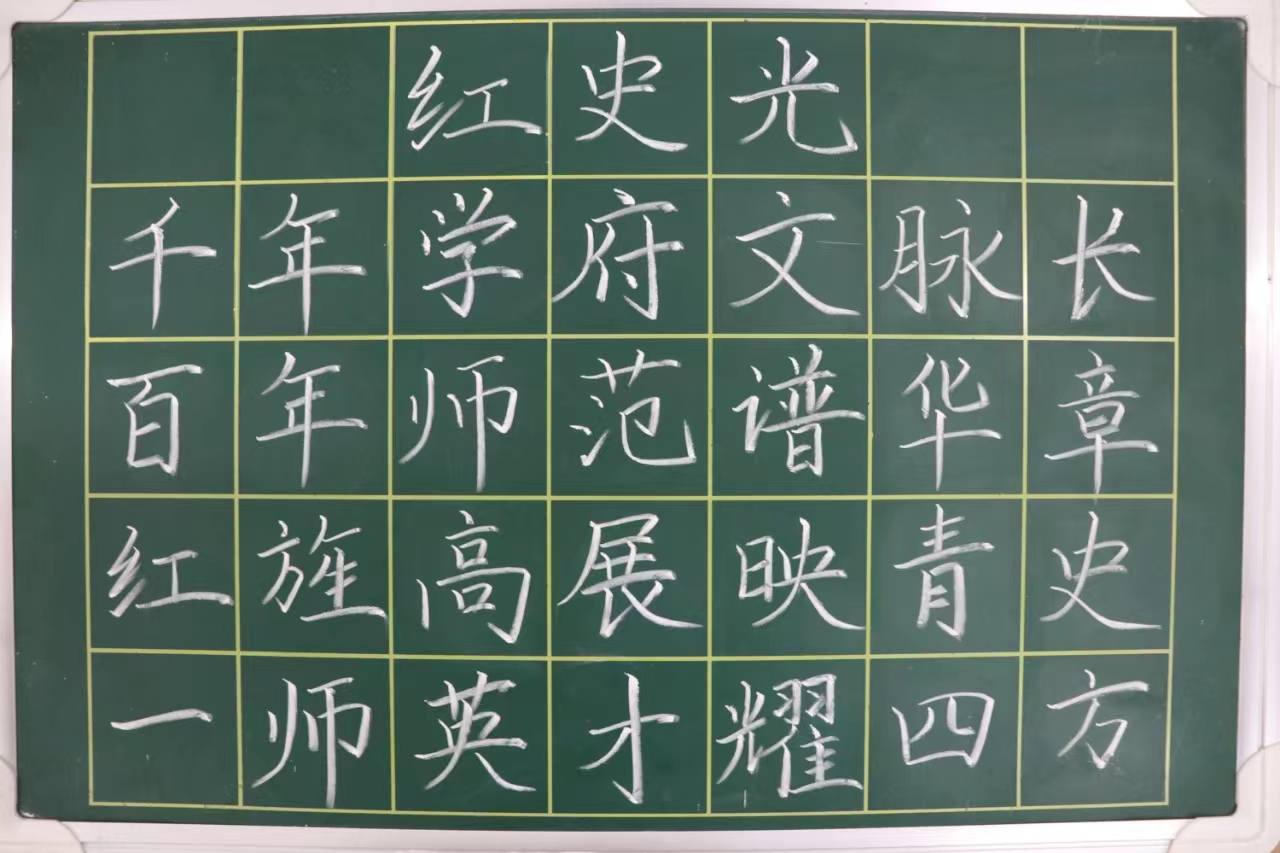 红史光
千年学府文脉长
百年师范谱华章
红旌高展映青史
一师英才耀四方